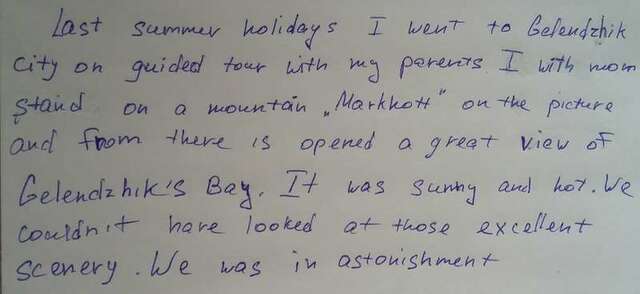 Last summer holidays I went to Gelendzhik
City on guided tour with my parents. I with mom
stand on a mountain „Markhott" on the picture
and from there is opened a great view of
Gelendzhik's Bay. It was sunny and hot. We
couldn't have looked at those excellent
scenery. We was in astonishment